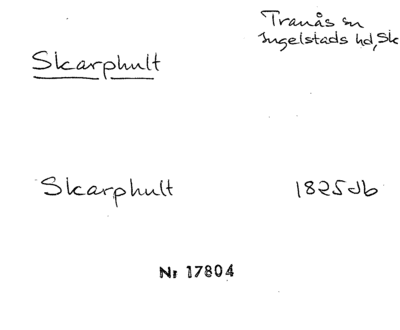 Tranås sn
Ingelstads hd, Sk
Skarphult
Skarphult 1825 Jb
Nr 17804